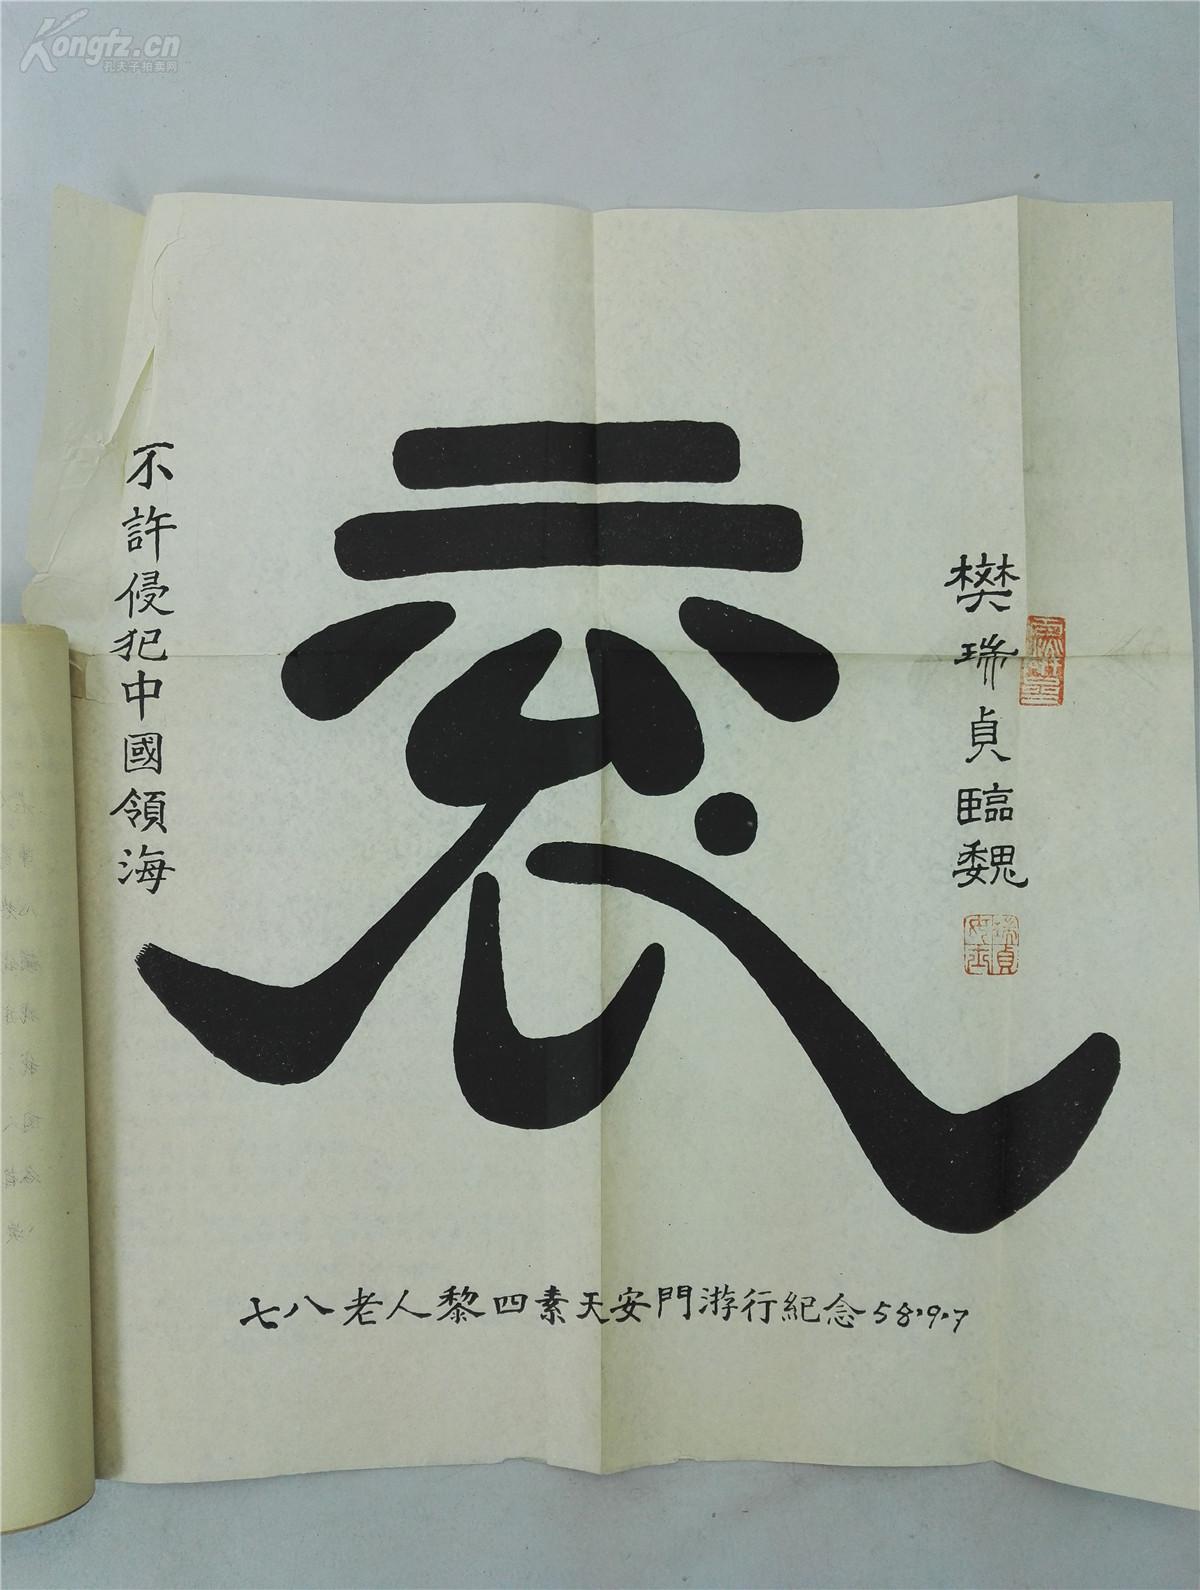 Kongfz.cn
孔夫子拍卖网
樊瑞貞臨魏
不許侵犯中國領海
七八老人黎四素天安門游行紀念58.9.7